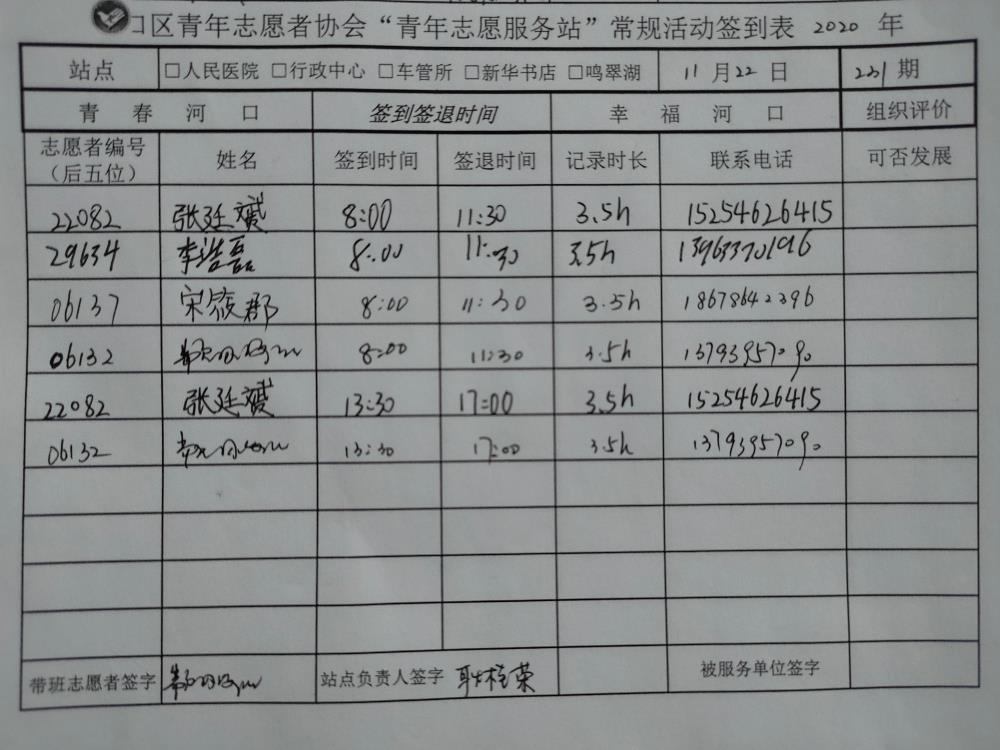 口区青年志愿者协会“青年志愿服务站”常规活动签到表 2020 年
站点 □人民医院 □行政中心 □车管所 □新华书店 □鸣翠湖 11月22日 221期
青春河口 签到签退时间 幸福河口 组织评价
志愿者编号（后五位） 姓名 签到时间 签退时间 记录时长 联系电话 可否发展
22082 张廷赟 8:00 11:30 3.5h 15254626415
29634 李浩磊 8:00 11:30 3.5h 13963370196
06137 宋筱郡 8:00 11:30 3.5h 18678642396
06132 8:00 11:30 3.5h 13793957090
22082 张廷赟 13:30 17:00 3.5h 15254626415
06132 13:30 17:00 3.5h 13793957090
带班志愿者签字 站点负责人签字 耿桂荣 被服务单位签字